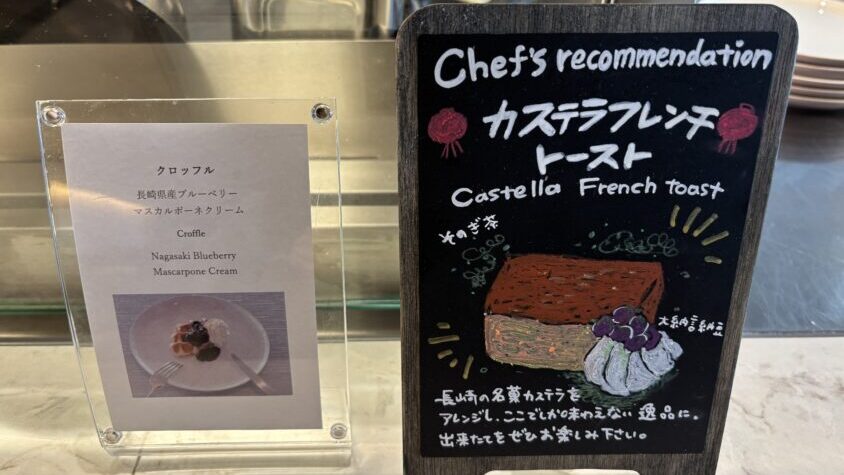 クロッフル
長崎県産ブルーベリー
マスカルポーネクリーム
Croffle
Nagasaki Blueberry
Mascarpone Cream
Chef's recommendation
カステラフレンチ
トースト
Castella French toast
そのぎ茶
大納言納豆
長崎の名菓カステラを
アレンジし、ここでしか味わえない逸品に。
出来たてをぜひお楽しみ下さい。